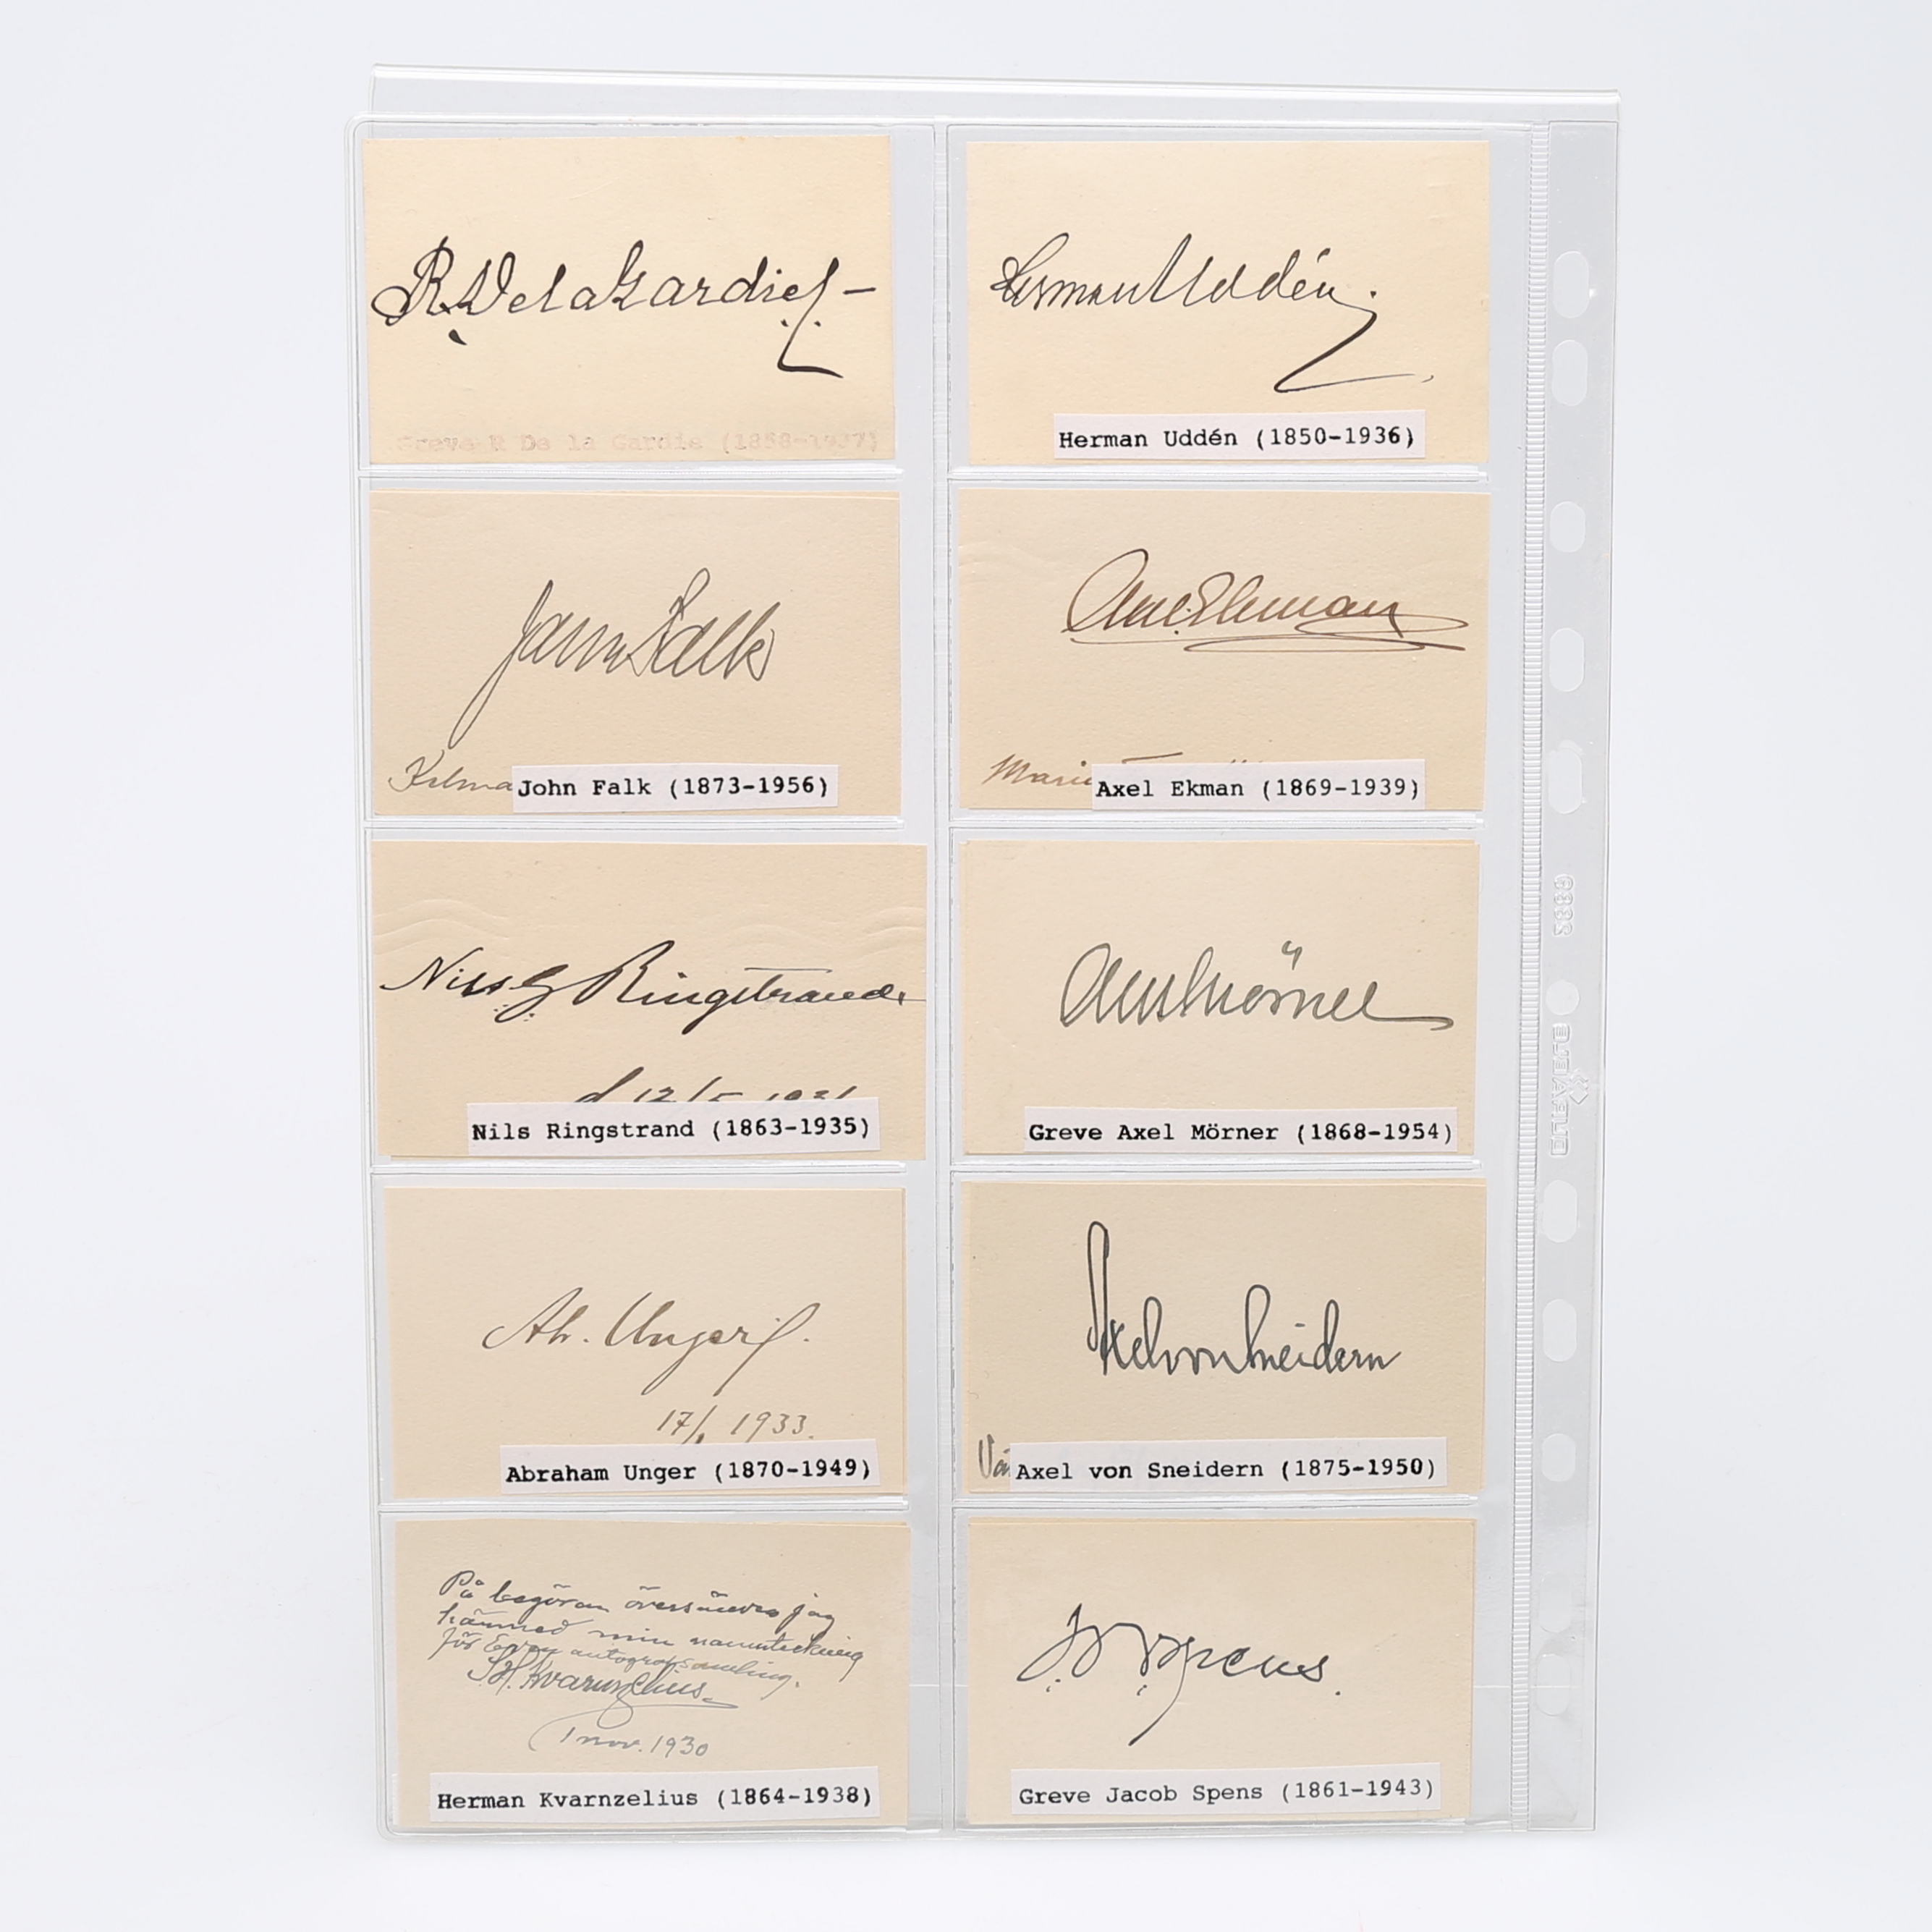 R De la Gardie
Greve R De la Gardie (1858-1937)
Herman Uddén.
Herman Uddén (1850-1936)
John Falk
John Falk (1873-1956)
Axel Ekman
Axel Ekman (1869-1939)
Nils G Ringstrand
d 12/5 1931
Nils Ringstrand (1863-1935)
Axel Mörner
Greve Axel Mörner (1868-1954)
Ab. Unger
17/1 1933.
Abraham Unger (1870-1949)
Axel von Sneidern
Axel von Sneidern (1875-1950)
På begäran översänder jag
härmed min namnteckning
för autografsamling.
Kvarnzelius
1 nov. 1930
Herman Kvarnzelius (1864-1938)
Spens.
Greve Jacob Spens (1861-1943)
DURABLE